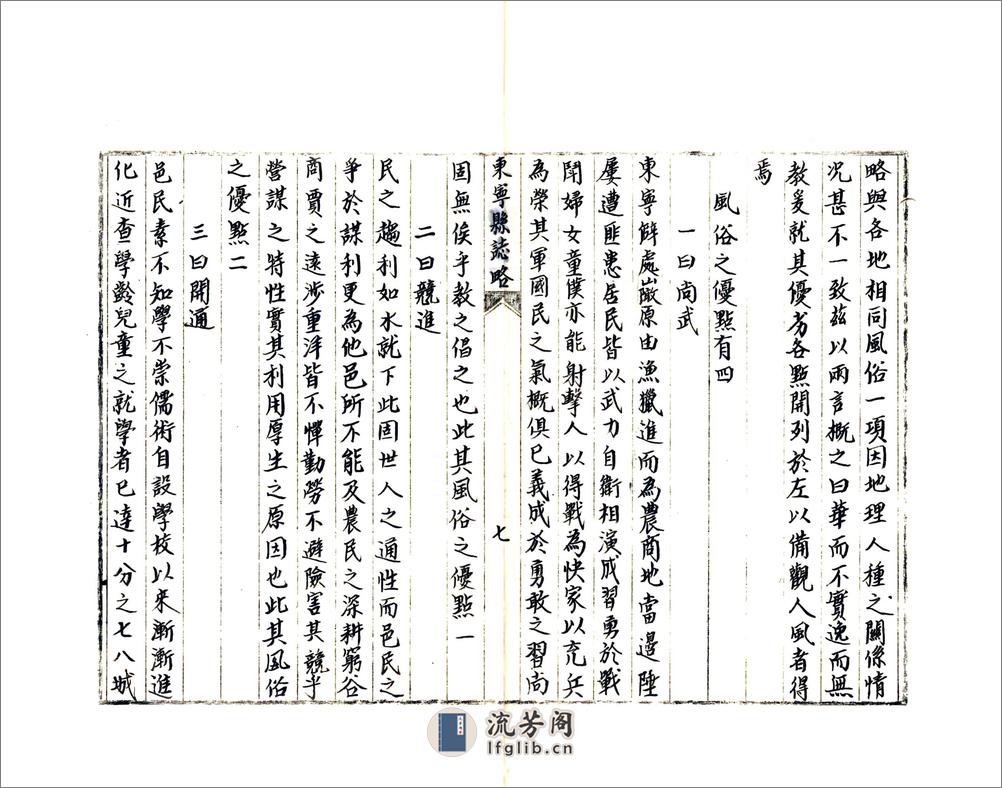 略與各地相同風俗一項因地理人種之關係情
況甚不一致茲以兩言概之曰華而不實逸而無
教爰就其優劣各點開列於左以備觀人風者得
焉
風俗之優點有四
一曰尚武
東寧僻處巖疆原由漁獵進而為農商地當邊陲
屢遭匪患居民皆以武力自衛相演成習勇於戰
鬥婦女童僕亦能射擊人以得戰為快家以充兵
為榮其軍國民之氣概俱已義成於勇敢之習尚
東寧縣誌略
七
固無俟乎教之倡之也此其風俗之優點一
二曰競進
民之趨利如水就下此固世人之通性而邑民之
爭於謀利更為他邑所不能及農民之深耕窮谷
商賈之遠涉重洋皆不憚勤勞不避險害其競乎
營謀之特性實其利用厚生之原因也此其風俗
之優點二
三曰開通
邑民素不知學不崇儒術自設學校以來漸漸進
化近查學齡兒童之就學者已達十分之七八城
流芳阁
lfglib.cn